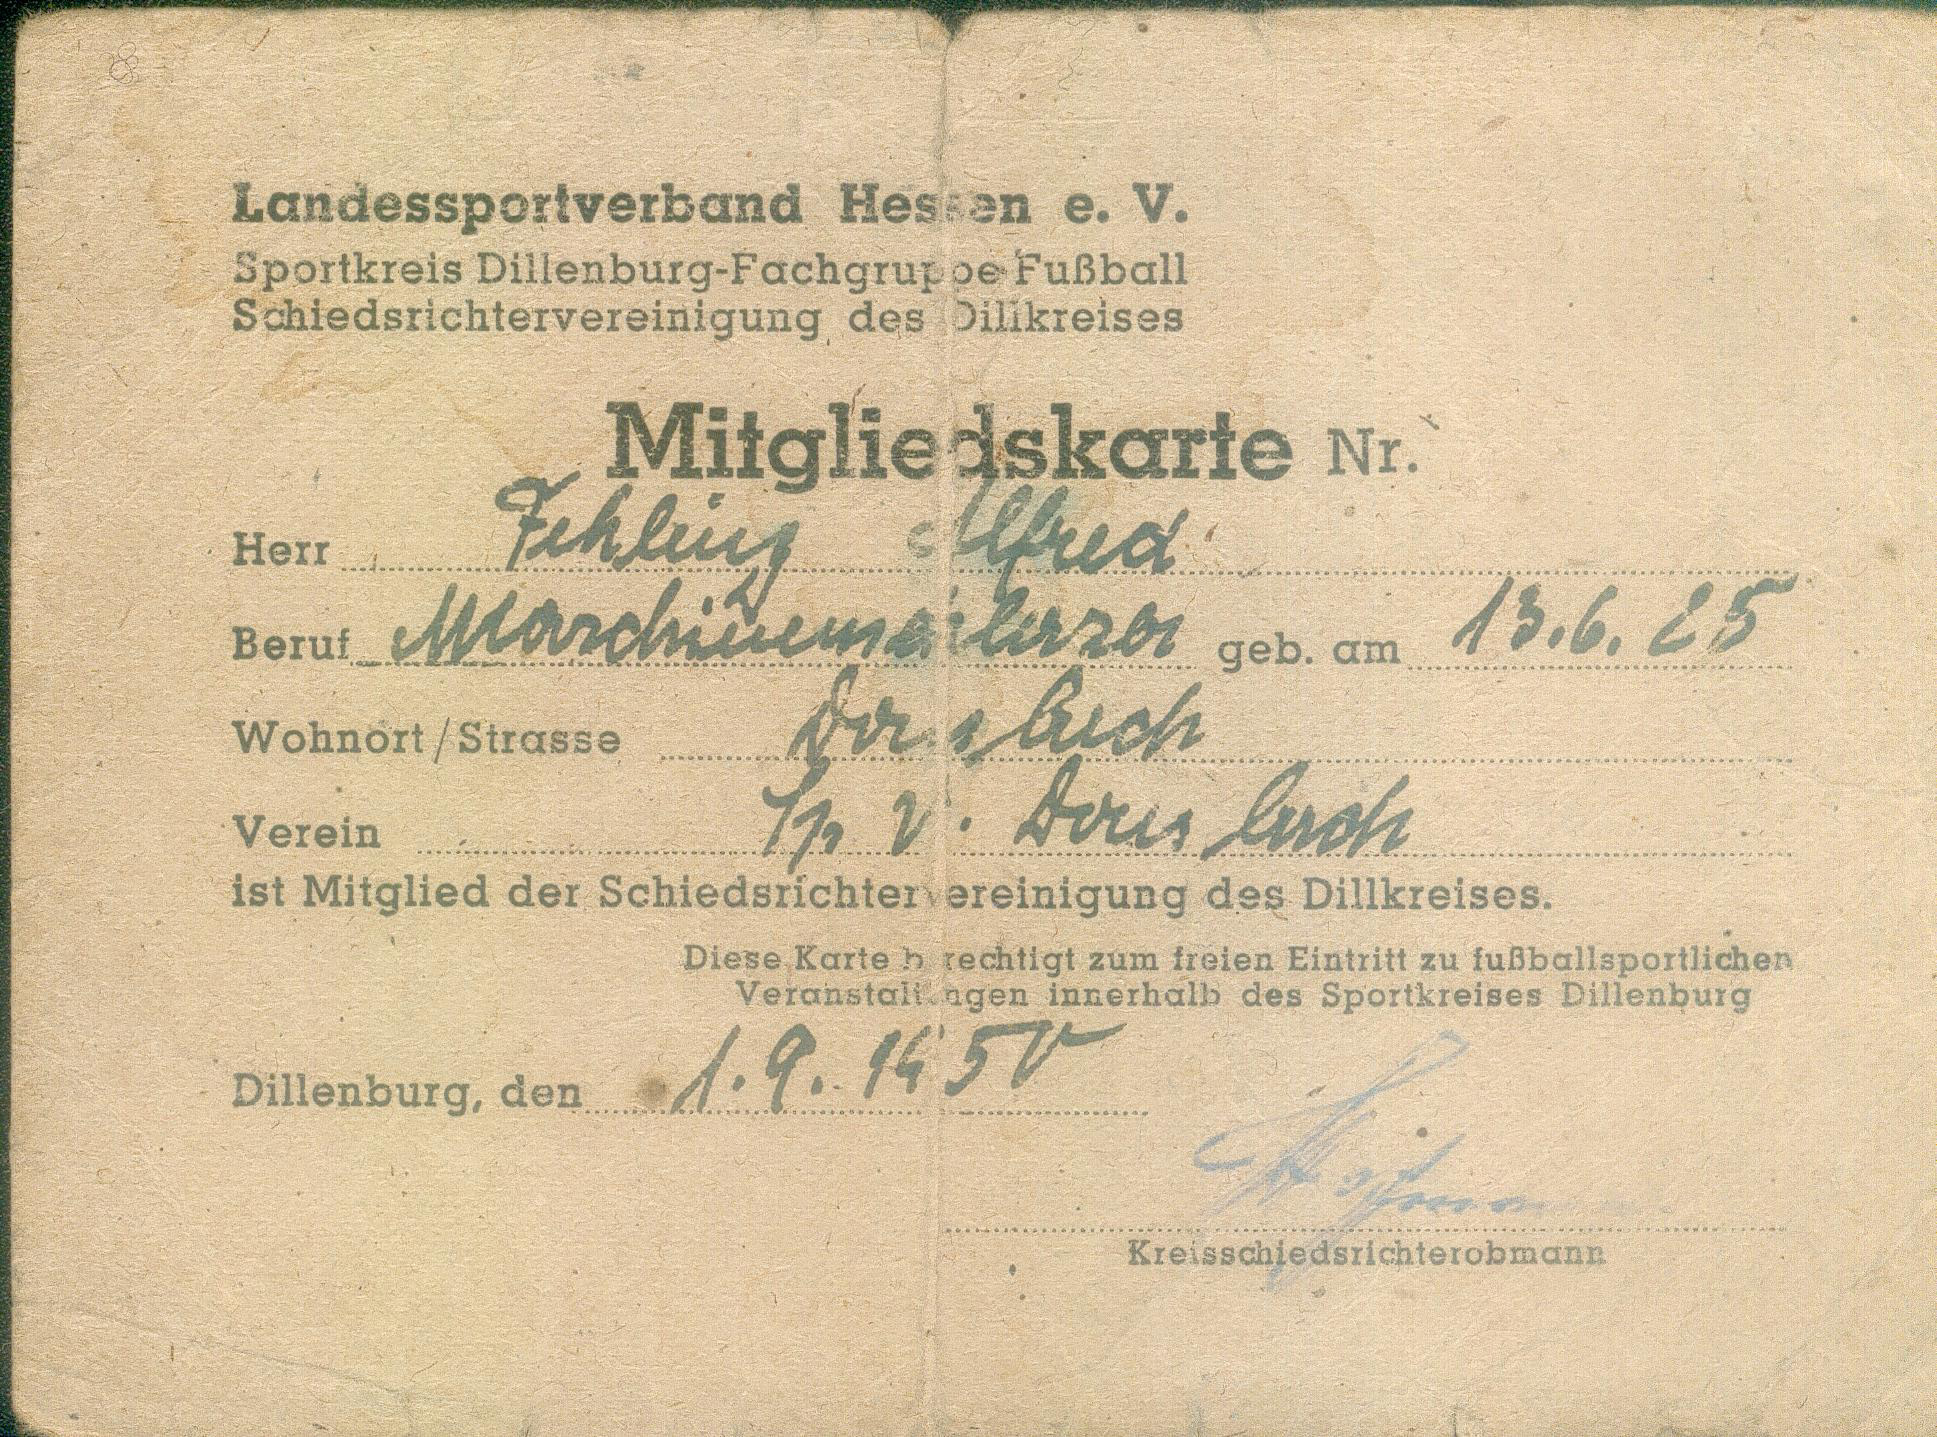 Landessportverband Hessen e. V.
Sportkreis Dillenburg-Fachgruppe Fußball
Schiedsrichtervereinigung des Dillkreises
Mitgliedskarte Nr.
Herr Fehling Alfred
Beruf geb. am 13.6.25
Wohnort/Strasse Donsbach
Verein Sp V. Donsbach
ist Mitglied der Schiedsrichtervereinigung des Dillkreises.
Diese Karte berechtigt zum freien Eintritt zu fußballsportlichen
Veranstaltungen innerhalb des Sportkreises Dillenburg
Dillenburg, den 1.9.1950
Kreisschiedsrichterobmann